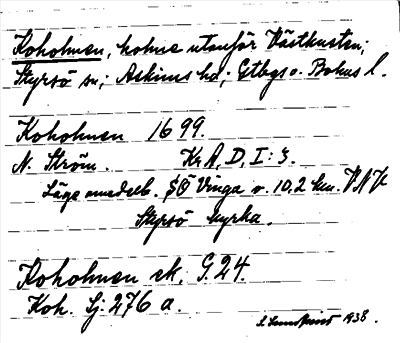 Koholmen, holme utanför Västkusten;
Styrsö sn; Askims hd; Gtbgs o. Bohus l.
Koholmen 1699.
N. Ström. Kr A, D, I: 3.
Läge omedelb. SÖ Vinga o. 10,2 km. VNV
Styrsö kyrka.
Koholmen ek. G. 24.
Koh. Sj. 276 a.
1938.